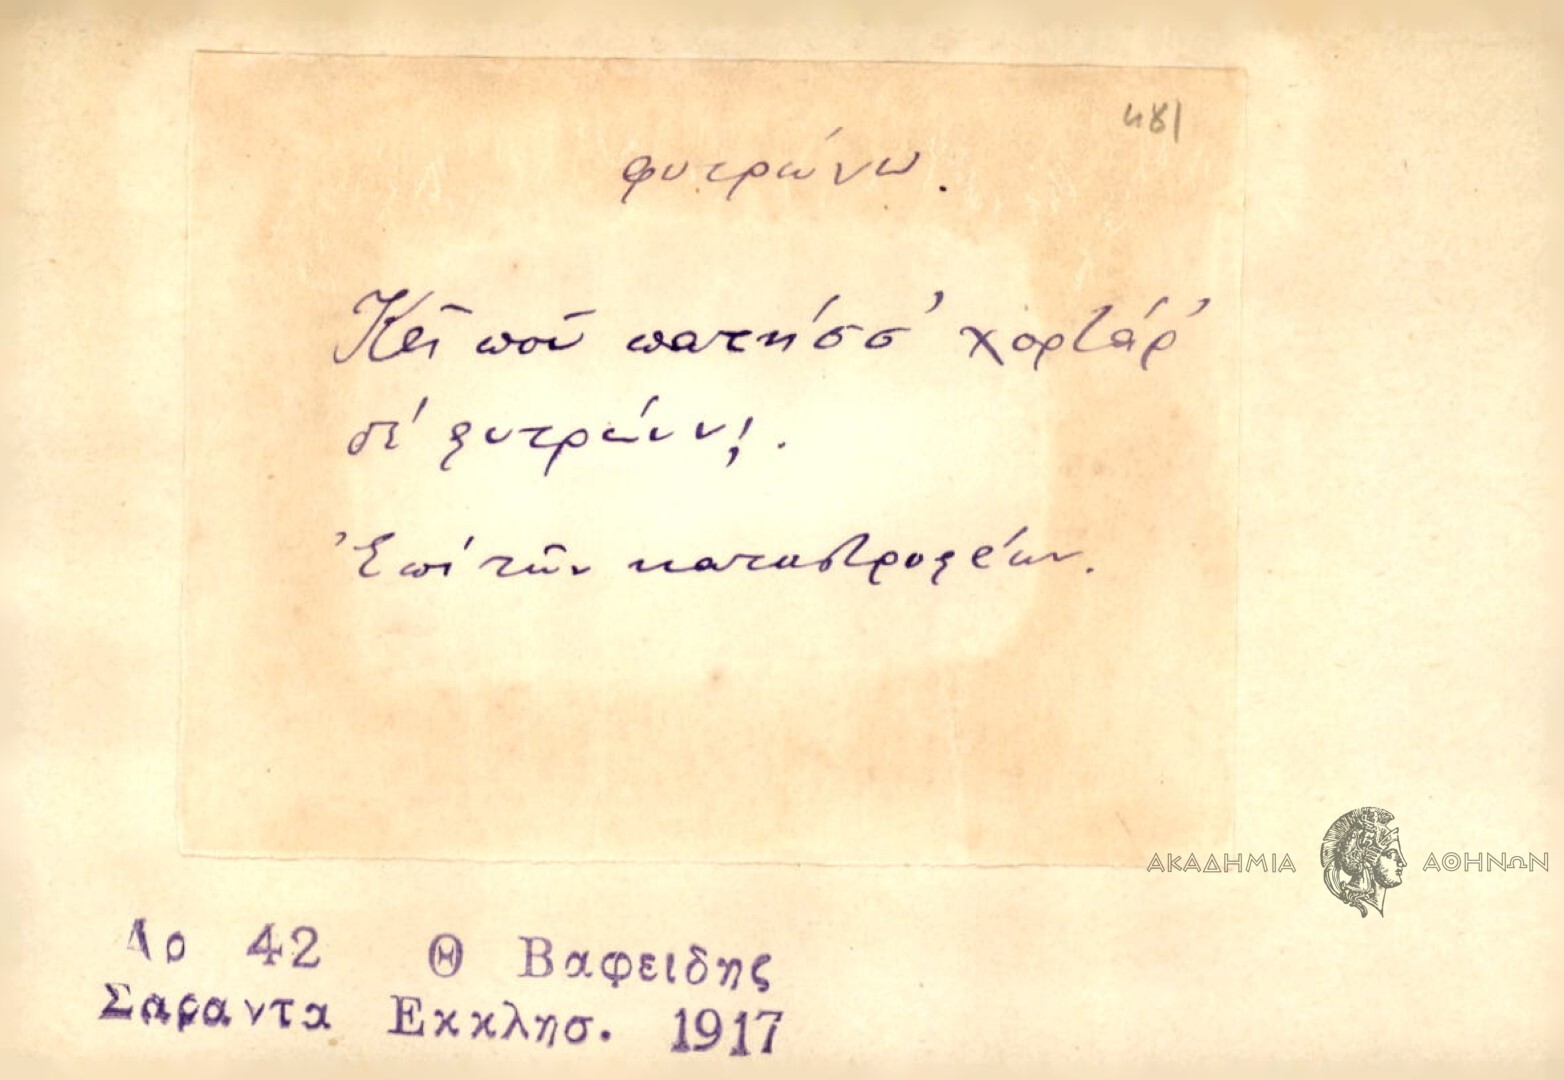 481
φυτρώνω.
Κεῖ ποῦ πατήσσ' χορτάρ'
δέ φυτρώνν!.
Ἐπί τῶν καταστροφέων.
ΑΚΑΔΗΜΙΑ ΑΘΗΝΩΝ
Αρ 42 Θ Βαφειδης
Σαραντα Εκκλησ. 1917